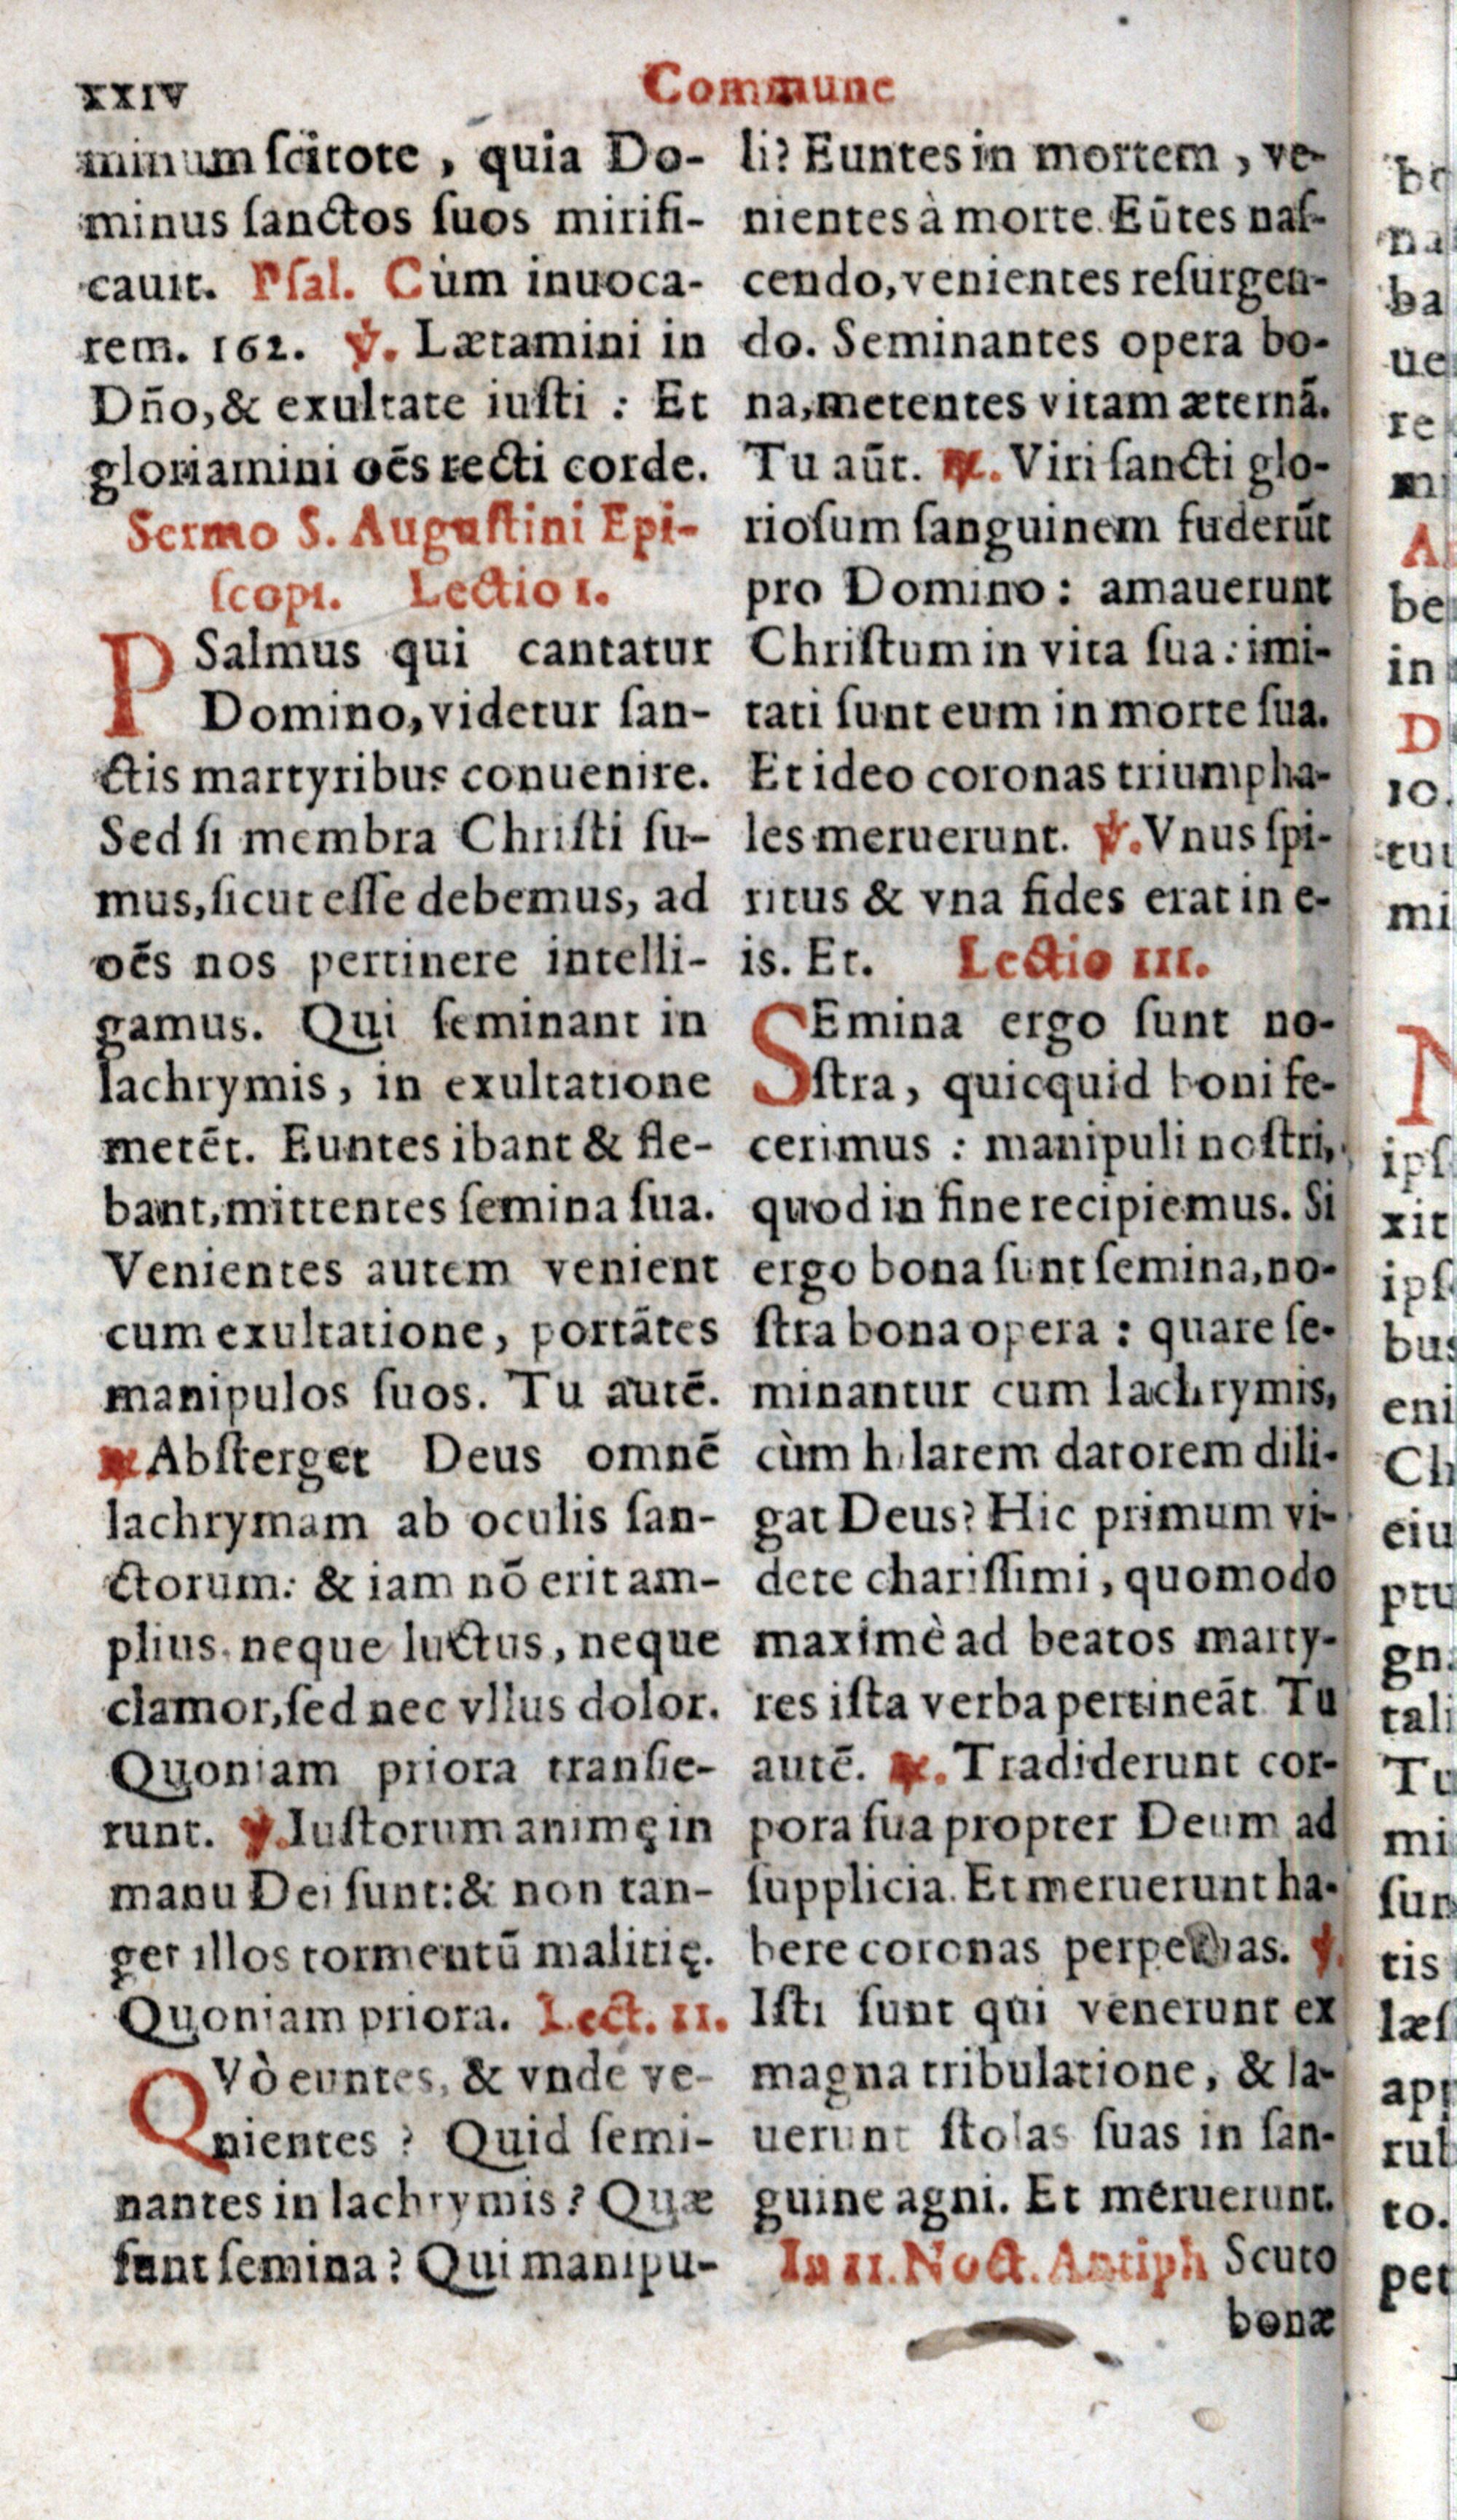 xxiv
Commune
minum ſcitote, quia Do-
minus ſanctos ſuos mirifi-
cauit. Pſal. Cùm inuoca-
rem. 162. ℣. Lætamini in
Dño, & exultate iuſti : Et
gloriamini oẽs recti corde.
Sermo S. Auguſtini Epi-
ſcopi. Lectio I.
PSalmus qui cantatur
Domino, videtur ſan-
ctis martyribus conuenire.
Sed ſi membra Chriſti ſu-
mus, ſicut eſſe debemus, ad
oẽs nos pertinere intelli-
gamus. Qui ſeminant in
lachrymis, in exultatione
metẽt. Euntes ibant & fle-
bant, mittentes ſemina ſua.
Venientes autem venient
cum exultatione, portãtes
manipulos ſuos. Tu autẽ.
℟. Abſterget Deus omnẽ
lachrymam ab oculis ſan-
ctorum: & iam nõ erit am-
plius, neque luctus, neque
clamor, ſed nec vllus dolor.
Quoniam priora tranſie-
runt. ℣. Iuſtorum animę in
manu Dei ſunt: & non tan-
get illos tormentũ malitię.
Quoniam priora. Lect. II.
QVò euntes, & vnde ve-
nientes? Quid ſemi-
nantes in lachrymis? Quæ
ſunt ſemina? Qui manipu-
li? Euntes in mortem, ve-
nientes à morte. Eũtes naſ-
cendo, venientes reſurgen-
do. Seminantes opera bo-
na, metentes vitam æternã.
Tu aũt. ℟. Viri ſancti glo-
rioſum ſanguinem fuderũt
pro Domino: amauerunt
Chriſtum in vita ſua: imi-
tati ſunt eum in morte ſua.
Et ideo coronas triumpha-
les meruerunt. ℣. Vnus ſpi-
ritus & vna fides erat in e-
is. Et. Lectio III.
SEmina ergo ſunt no-
ſtra, quicquid boni fe-
cerimus : manipuli noſtri,
quod in fine recipiemus. Si
ergo bona ſunt ſemina, no-
ſtra bona opera : quare ſe-
minantur cum lachrymis,
cùm hilarem datorem dili-
gat Deus? Hic primum vi-
dete chariſſimi, quomodo
maximè ad beatos marty-
res iſta verba pertineãt. Tu
autẽ. ℟. Tradiderunt cor-
pora ſua propter Deum ad
ſupplicia. Et meruerunt ha-
bere coronas perpetuas. ℣.
Iſti ſunt qui venerunt ex
magna tribulatione, & la-
uerunt ſtolas ſuas in ſan-
guine agni. Et meruerunt.
In II. Noct. Antiph Scuto
bonæ